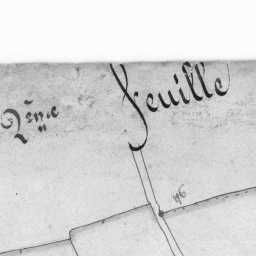 2ème Feuille